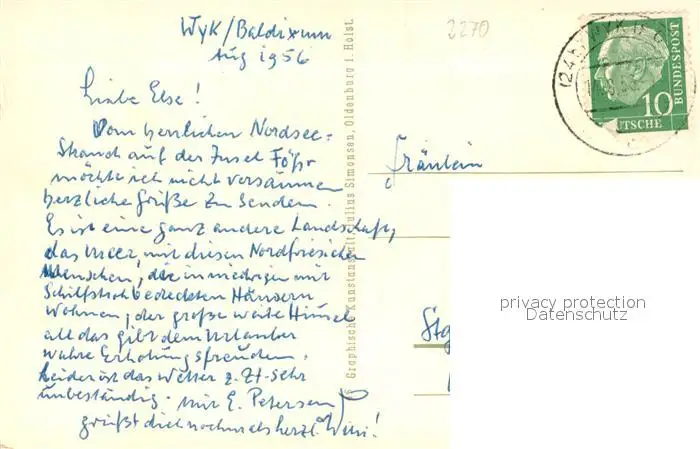 Wyk/Boldixum
Aug 1956
Liebe Else!
Vom herrlichen Nordsee=
Strand auf der Insel Föhr
möchte ich nicht versäumen
herzliche Grüße zu senden.
Es ist eine ganz andere Landschaft,
das Meer, mit diesen Nordfriesischen
Menschen, die in niedrigen mit
Schilfstroh bedeckten Häusern
wohnen, der große weite Himmel
all das gibt dem Urlauber
wahre Erholungsfreuden.
Leider ist das Wetter z. Zt. sehr
unbeständig. Mit E. Petersen
grüßt dich nochmals herzl.
2270
Graphische Kunstanstalt Julius Simonsen, Oldenburg i. Holst.
Fräulein
Stg
10
DEUTSCHE
BUNDESPOST
(24b) WYK
privacy protection
Datenschutz